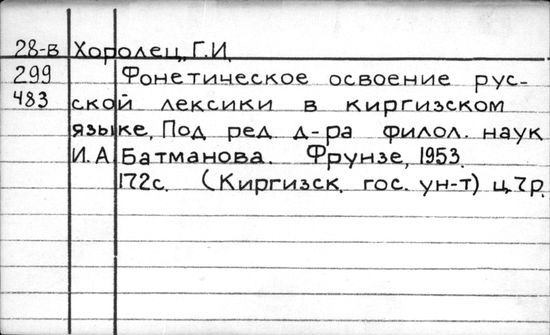 28-в Хоролец, Г.И.
299 Фонетическое освоение рус-
483 ской лексики в киргизском
языке. Под ред д-ра филол. наук
И. А. Батманова. Фрунзе, 1953.
172с. (Киргизск. гос. ун-т) ц. 7 р.